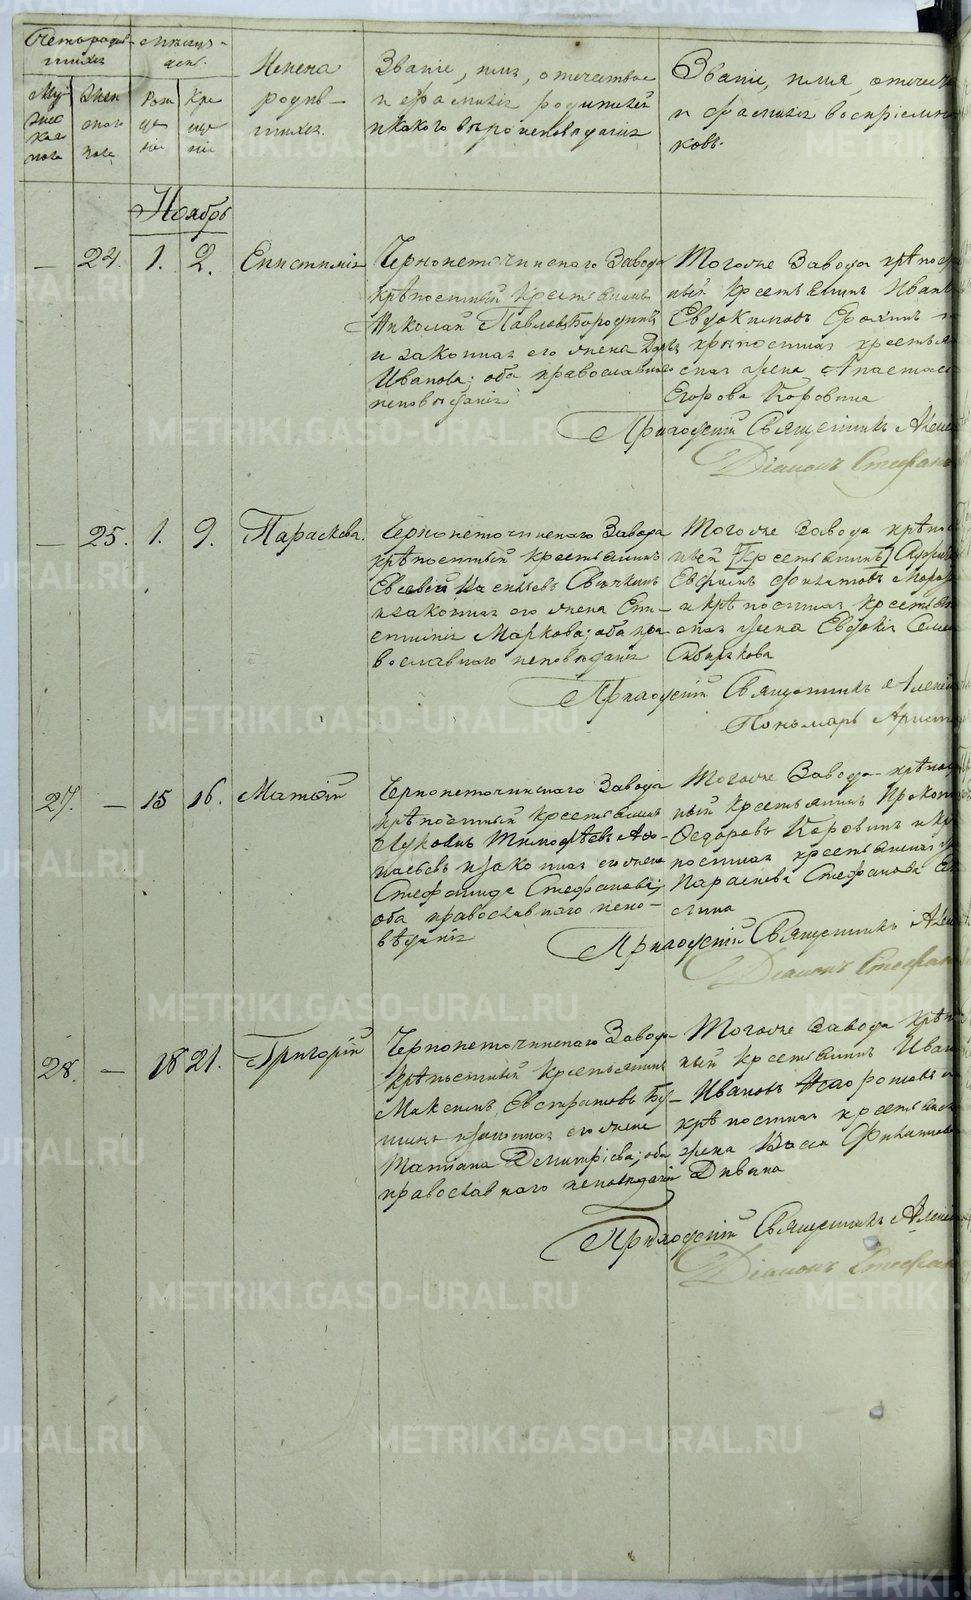 Счетъ родив-
шихся
Муж
ска
го
пола
Жен
скаго
пола
Мѣсяцъ
день.
Рож
де
нія
Кре
ще
нія
Имена
родив-
шихся.
Званіе, имя, отчество
и фамилія родителей
и какого вѣроисповѣданія
Званіе, имя, отчест
и фамилія воспріемни
ковъ.
Ноябрь
— 24. 1. 2. Епистимія
Черноисточинскаго Завода
крѣпостный крестьянинъ
Николай Павловъ Бородинъ
и законная его жена Дарья
Иванова; оба православнаго
исповѣданія
Тогоже Завода крѣпост
ный крестьянинъ Иван
Евдокимовъ Ерохинъ и
крѣпостная крестьян
ская жена Анастас
Егорова Коровина
Приходскій Священникъ Алек
Діаконъ Стефан
— 25. 1. 9. Параскева.
Черноисточинскаго Завода
крѣпостный крестьянинъ
Евсевій Савичкинъ
и законная его жена Епи-
стимія Маркова; оба пра
вославнаго исповѣданія
Тогоже завода крѣпос
ный [крестьянинъ]
Ефимъ Филатовъ
и крѣпостная крестьян
ская жена Евдокія Семе
Сибирякова
Приходскій Священникъ Алексѣ
Пономарь Арист
27. — 15 16. Матѳій
Черноисточинскаго Завода
крѣпостный крестьянинъ
Лукоянъ Тимофѣевъ Аѳо-
насьевъ и законная его жена
Стефанида Стефанова;
оба православнаго испо-
вѣданія
Тогоже Завода крѣпост
ный крестьянинъ Прокоп
Ѳедоровъ Коровинъ и кр
постная крестьянская
Параскева Стефанова
Приходскій Священникъ Алек
Діаконъ Стефан
28. — 18 21. Григорій
Черноисточинскаго Завода
крѣпостный крестьянинъ
Максимъ Евстратовъ Бу-
шинъ и законная его жена
Татіана Димитріева; оба
православнаго исповѣданія
Тогоже завода крѣп
ный крестьянинъ Иван
Ивановъ
крѣпостная крестьянск
жена Васса Филиппова
Дивина
Приходскій Священникъ Алексѣ
Діаконъ Стефан
METRIKI.GASO-URAL.RU